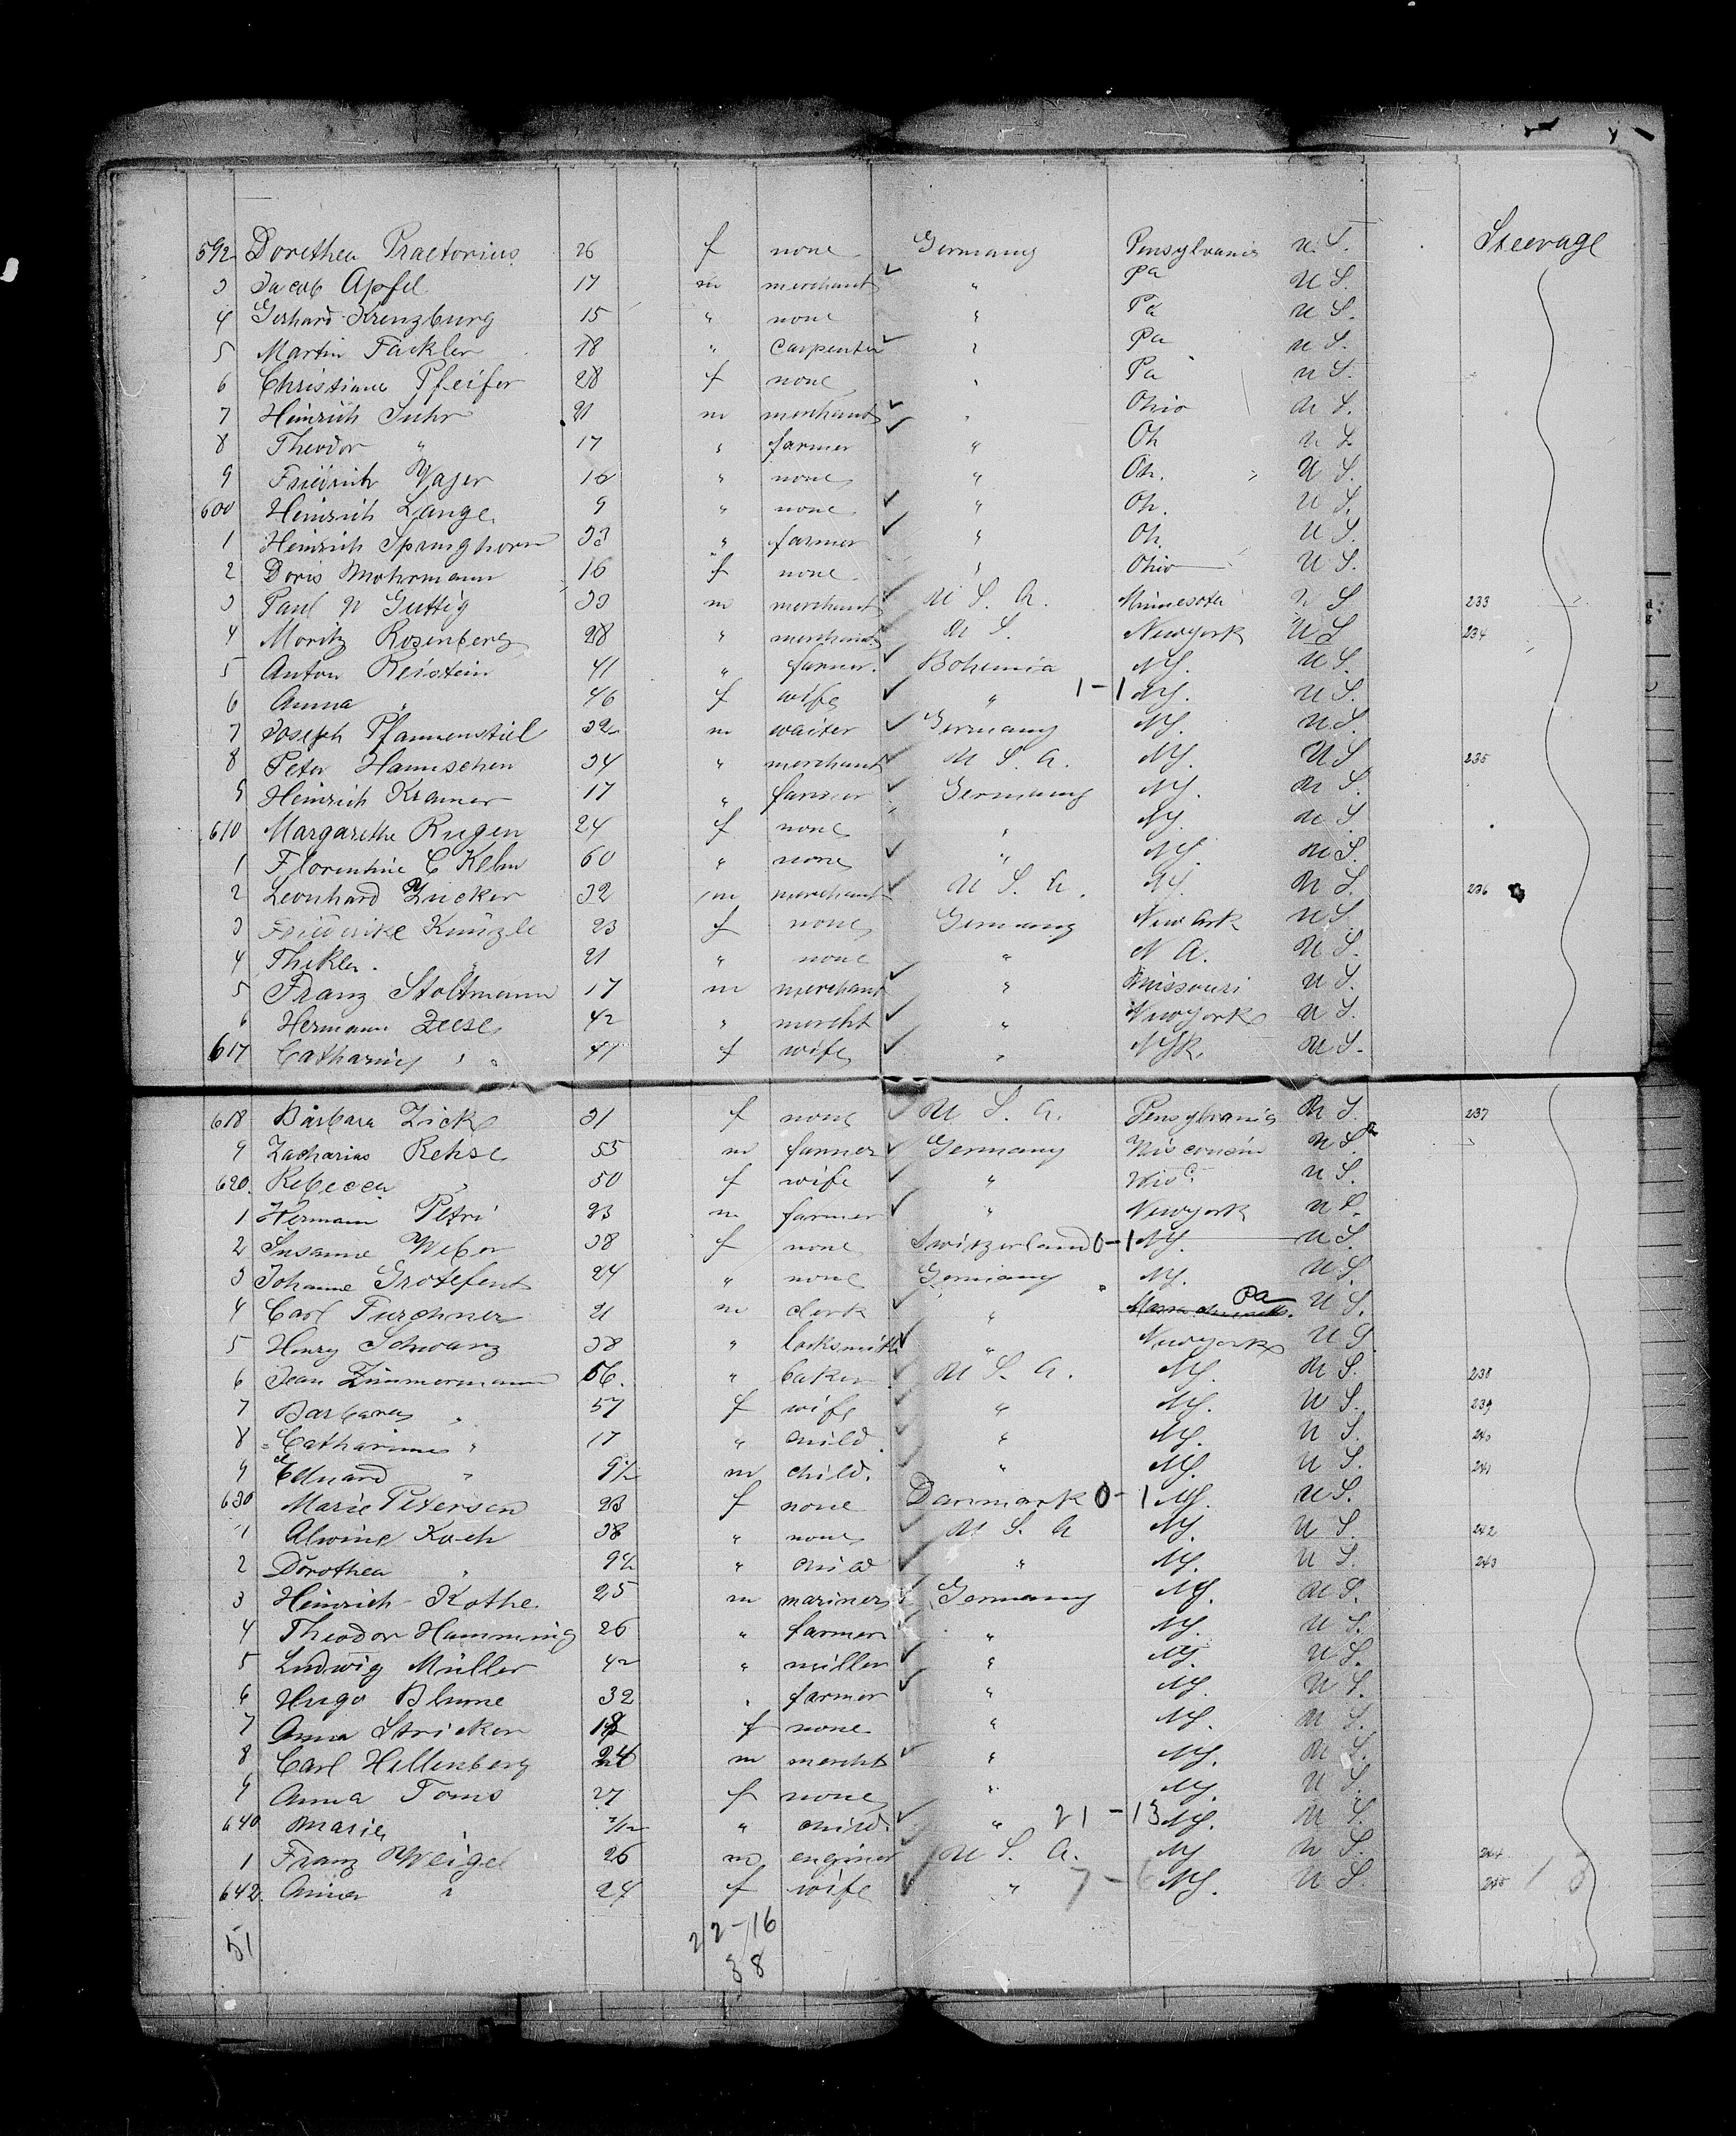 592 Dorethea Praetorius 26 f none Germany Pensylvania U. S. Steerage
3 Jacob Apfel 17 m merchant " Pa U S.
4 Gerhard Krenzburg 15 " none " Pa U S.
5 Martin Fackler 18 " Carpenter " Pa U S.
6 Christiane Pfeifer 28 f none " Pa U S.
7 Heinrich Suhr 21 m merchant " Ohio U S.
8 Theodor " 17 " farmer " Oh U S.
9 Friedrich Wajer 16 " none " Oh. U S.
600 Heinrich Lange 9 " none " Oh. U S.
1 Heinrich Springhorn 33 " farmer " Oh. U S.
2 Doris Mohrmann 16 f none " Ohio U S.
3 Paul N Guttig 33 m merchant U S. A. Minnesota U S 233
4 Moritz Rosenberg 28 " merchant U S. Newyork U S 234
5 Anton Reistein 41 " farmer. Bohemia NY. U S.
6 Anna " 46 f wife " 1-1 NY. U S.
7 Joseph Pfannenstiel 32 m waiter Germany NY. U S.
8 Peter Hannschen 34 " merchant U S. A. NY. U S 235
9 Heinrich Kramer 17 " farmer Germany NY. U S.
610 Margarethe Rugen 24 f none " NY. U S.
1 Florentine C Kelm 60 " none " NY. U S.
2 Leonhard Zucker 32 m merchant U S. A. NY. U S. 236
3 Friederike Künzle 23 f none Germany New Ark U S.
4 Thekla " 21 " none " N A. U S.
5 Franz Stoltmann 17 m merchant " Missouri U S.
6 Hermann Zeese 42 " mercht " Newyork U S.
617 Catharine " " 41 f wife " NYk. U S.
618 Barbara Zick 31 f none U S. A. Pensylvania U S. 237
9 Zacharias Rehse 55 m farmer Germany Wisconsin U S.
620. Rebecca " 50 f wife " Wisc. U S.
1 Hermann Petri 23 m farmer " Newyork U S.
2 Susanne Weber 38 f none Switzerland 0-1 NY. U S.
3 Johanne Grotefent 24 " none Germany NY. U S.
4 Carl Furchner 21 m clerk " Massachusetts. Pa U S.
5 Henry Schwanz 38 " locksmith " Newyork U S.
6 Jean Zimmermann 56. " baker U S. A. NY. U S. 238
7 Barbara " 57 f wife " NY. U S. 239
8 Catharine " 17 " child. " NY. U S. 240
9 Eduard " 9½ m child. " NY. U S. 241
630 Marie Petersen 23 f none Danmark 0-1 NY. U S.
1 Alwine Koch 38 " none U S. A NY. U S. 242
2 Dorothea " 9½ " child " NY. U S. 243
3 Heinrich Kothe 25 m mariner Germany NY. U S.
4 Theodor Hamming 26 " farmer " NY. U S.
5 Ludwig Müller 42 " miller " NY. U S.
6 Hugo Blume 32 " farmer " NY. U S.
7 Anna Stricker 18 f none " NY. U S.
8 Carl Hellenberg 24 m mercht " NY. U S.
9 Anna Toms 27 f none " NY. U S.
640 Marie " " child. " 21-13 NY. U S.
1 Franz Weigel 26 m enginer U S. A. NY U S. 244
642. Anna " 24 f wife " 7-6 NY. U S. 245 13
51 22-16
38